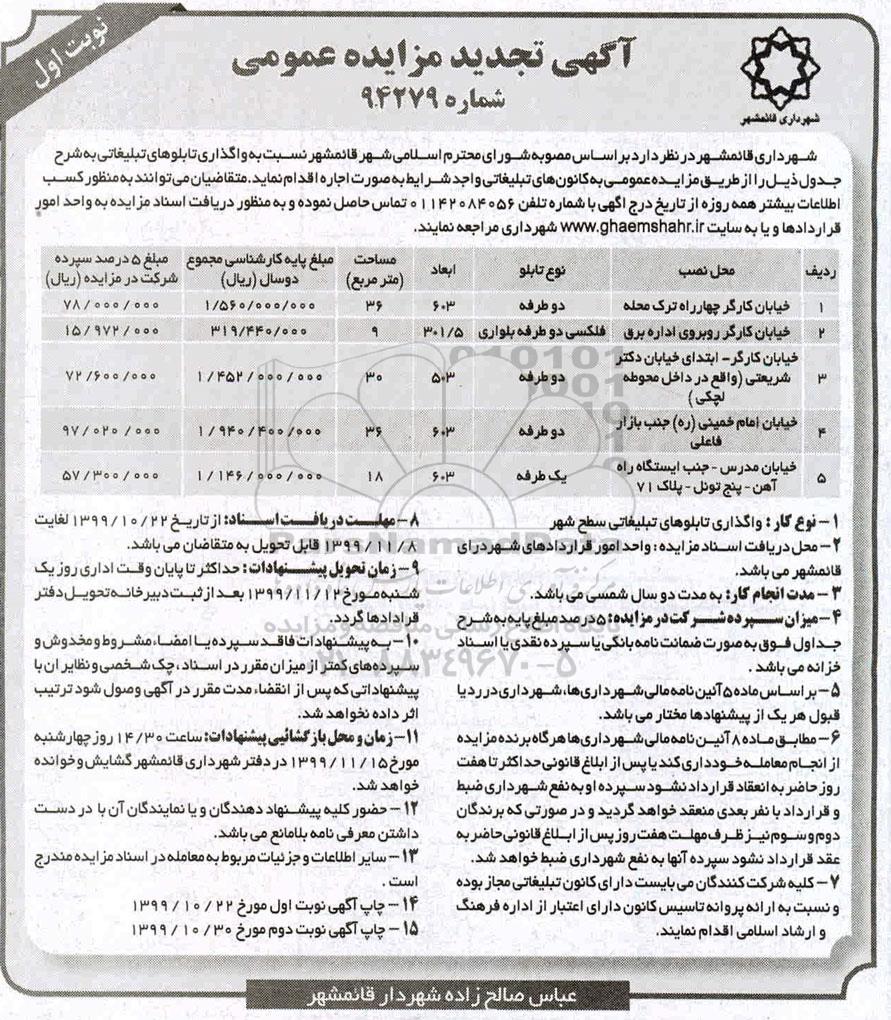 نوبت اول
آگهی تجدید مزایده عمومی
شماره ۹۴۲۷۹
شهرداری قائمشهر
شهرداری قائمشهر در نظر دارد بر اساس مصوبه شورای محترم اسلامی شهر قائمشهر نسبت به واگذاری تابلوهای تبلیغاتی به شرح
جدول ذیل را از طریق مزایده عمومی به کانون های تبلیغاتی واجد شرایط به صورت اجاره اقدام نماید. متقاضیان می توانند به منظور کسب
اطلاعات بیشتر همه روزه از تاریخ درج آگهی با شماره تلفن ۰۱۱۴۲۰۸۴۰۵۶ تماس حاصل نموده و به منظور دریافت اسناد مزایده به واحد امور
قراردادها و یا به سایت www.ghaemshahr.ir شهرداری مراجعه نمایند.
ردیف محل نصب نوع تابلو ابعاد مساحت (متر مربع) مبلغ پایه کارشناسی مجموع دوسال (ریال) مبلغ ۵ درصد سپرده شرکت در مزایده (ریال)
۱ خیابان کارگر چهارراه ترک محله دو طرفه ۶۰۳ ۳۶ ۱/۵۶۰/۰۰۰/۰۰۰ ۷۸/۰۰۰/۰۰۰
۲ خیابان کارگر روبروی اداره برق فلکسی دو طرفه بلواری ۳۰۱/۵ ۹ ۳۱۹/۴۴۰/۰۰۰ ۱۵/۹۷۲/۰۰۰
۳ خیابان کارگر- ابتدای خیابان دکتر شریعتی (واقع در داخل محوطه لچکی ) دو طرفه ۵۰۳ ۳۰ ۱/۴۵۲/۰۰۰/۰۰۰ ۷۲/۶۰۰/۰۰۰
۴ خیابان امام خمینی (ره) جنب بازار فاعلی دو طرفه ۶۰۳ ۳۶ ۱/۹۴۰/۴۰۰/۰۰۰ ۹۷/۰۲۰/۰۰۰
۵ خیابان مدرس - جنب ایستگاه راه آهن - پنج تونل - پلاک ۷۱ یک طرفه ۶۰۳ ۱۸ ۱/۱۴۶/۰۰۰/۰۰۰ ۵۷/۳۰۰/۰۰۰
۱- نوع کار : واگذاری تابلوهای تبلیغاتی سطح شهر
۲- محل دریافت اسناد مزایده : واحد امور قراردادهای شهرداری
قائمشهر می باشد.
۳- مدت انجام کار: به مدت دو سال شمسی می باشد.
۴- میزان سپرده شرکت در مزایده: ۵ درصد مبلغ پایه به شرح
جداول فوق به صورت ضمانت نامه بانکی یا سپرده نقدی یا اسناد
خزانه می باشد .
۵- بر اساس ماده ۵ آئین نامه مالی شهرداری ها، شهرداری در رد یا
قبول هر یک از پیشنهادها مختار می باشد.
۶- مطابق ماده ۸ آئین نامه مالی شهرداری ها هرگاه برنده مزایده
از انجام معامله خودداری کند یا پس از ابلاغ قانونی حداکثر تا هفت
روز حاضر به انعقاد قرارداد نشود سپرده او به نفع شهرداری ضبط
و قرارداد با نفر بعدی منعقد خواهد گردید و در صورتی که برندگان
دوم و سوم نیز ظرف مهلت هفت روز پس از ابلاغ قانونی حاضر به
عقد قرارداد نشود سپرده آنها به نفع شهرداری ضبط خواهد شد.
۷- کلیه شرکت کنندگان می بایست دارای کانون تبلیغاتی مجاز بوده
و نسبت به ارائه پروانه تاسیس کانون دارای اعتبار از اداره فرهنگ
و ارشاد اسلامی اقدام نمایند.
۸- مهلت دریافت اسناد: از تاریخ ۱۳۹۹/۱۰/۲۲ لغایت
۱۳۹۹/۱۱/۸ قابل تحویل به متقاضان می باشد.
۹- زمان تحویل پیشنهادات: حداکثر تا پایان وقت اداری روز یک
شنبه مورخ ۱۳۹۹/۱۱/۱۲ بعد از ثبت دبیرخانه تحویل دفتر
قرادادها گردد.
۱۰- به پیشنهادات فاقد سپرده یا امضاء، مشروط و مخدوش و
سپرده های کمتر از میزان مقرر در اسناد، چک شخصی و نظایر ان با
پیشنهاداتی که پس از انقضاء مدت مقرر در آگهی وصول شود ترتیب
اثر داده نخواهد شد.
۱۱- زمان و محل بازگشائیی پیشنهادات: ساعت ۱۴/۳۰ روز چهارشنبه
مورخ ۱۳۹۹/۱۱/۱۵ در دفتر شهرداری قائمشهر گشایش و خوانده
خواهد شد.
۱۲- حضور کلیه پیشنهاد دهندگان و یا نمایندگان آن با در دست
داشتن معرفی نامه بلامانع می باشد.
۱۳- سایر اطلاعات و جزئیات مربوط به معامله در اسناد مزایده مندرج
است .
۱۴- چاپ آگهی نوبت اول مورخ ۱۳۹۹/۱۰/۲۲
۱۵- چاپ آگهی نوبت دوم مورخ ۱۳۹۹/۱۰/۳۰
عباس صالح زاده شهردار قائمشهر